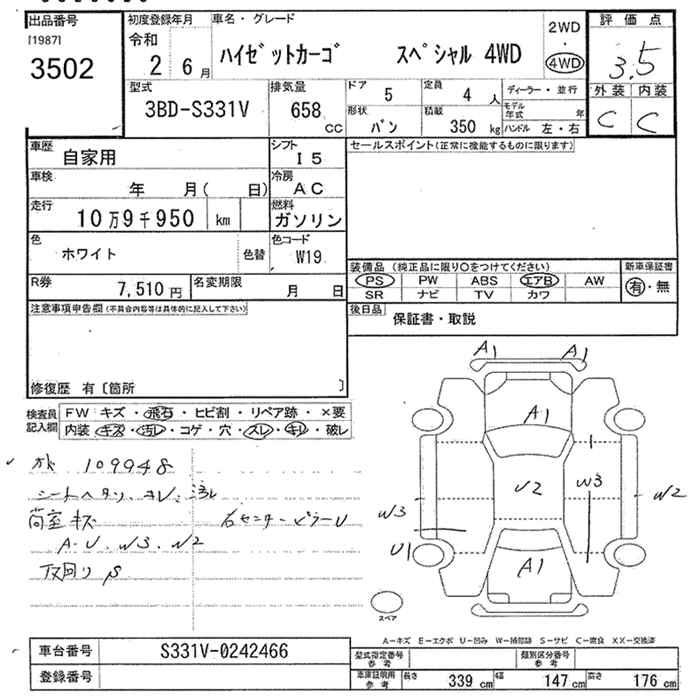 出品番号
[1987]
3502
初度登録年月
令和
2 6月
車名・グレード
ハイゼットカーゴ スペシャル 4WD
2WD
・
4WD
評価点
3.5
外装 内装
C C
型式
3BD-S331V
排気量
658
CC
ドア
5
定員
4 人
形状
バン
積載
350 kg
ディーラー・並行
モデル年式 年
ハンドル 左・右
車歴
自家用
シフト
I5
車検
年 月( 日)
冷房
AC
走行
10万9千950 km
燃料
ガソリン
色
ホワイト
色替
色コード
W19
R券
7,510円
名変期限
月 日
セールスポイント(正常に機能するものに限ります)
装備品(純正品に限り○をつけてください)
新車保証書
PS PW ABS エアB AW
SR ナビ TV カワ
有・無
後日品
保証書・取説
注意事項申告欄(不具合内容等は具体的に記入して下さい)
修復歴 有〔箇所 〕
検査員記入欄
FW キズ・飛石・ヒビ割・リペア跡・×要
内装 キズ・汚レ・コゲ・穴・スレ・キレ・破レ
109948
シートヘタリ、ヨレ、汚レ
荷室キズ
右センターピラーU
A・U、W3、W2
下回りS
A1 A1
A1
U2
W3
W3
W2
U1
A1
スペア
A-キズ E-エクボ U-凹み W-補修跡 S-サビ C-腐食 XX-交換済
車台番号
S331V-0242466
登録番号
型式指定番号
参考
類別区分番号
参考
車庫証明用
参考
長さ 339 cm 幅 147 cm 高さ 176 cm